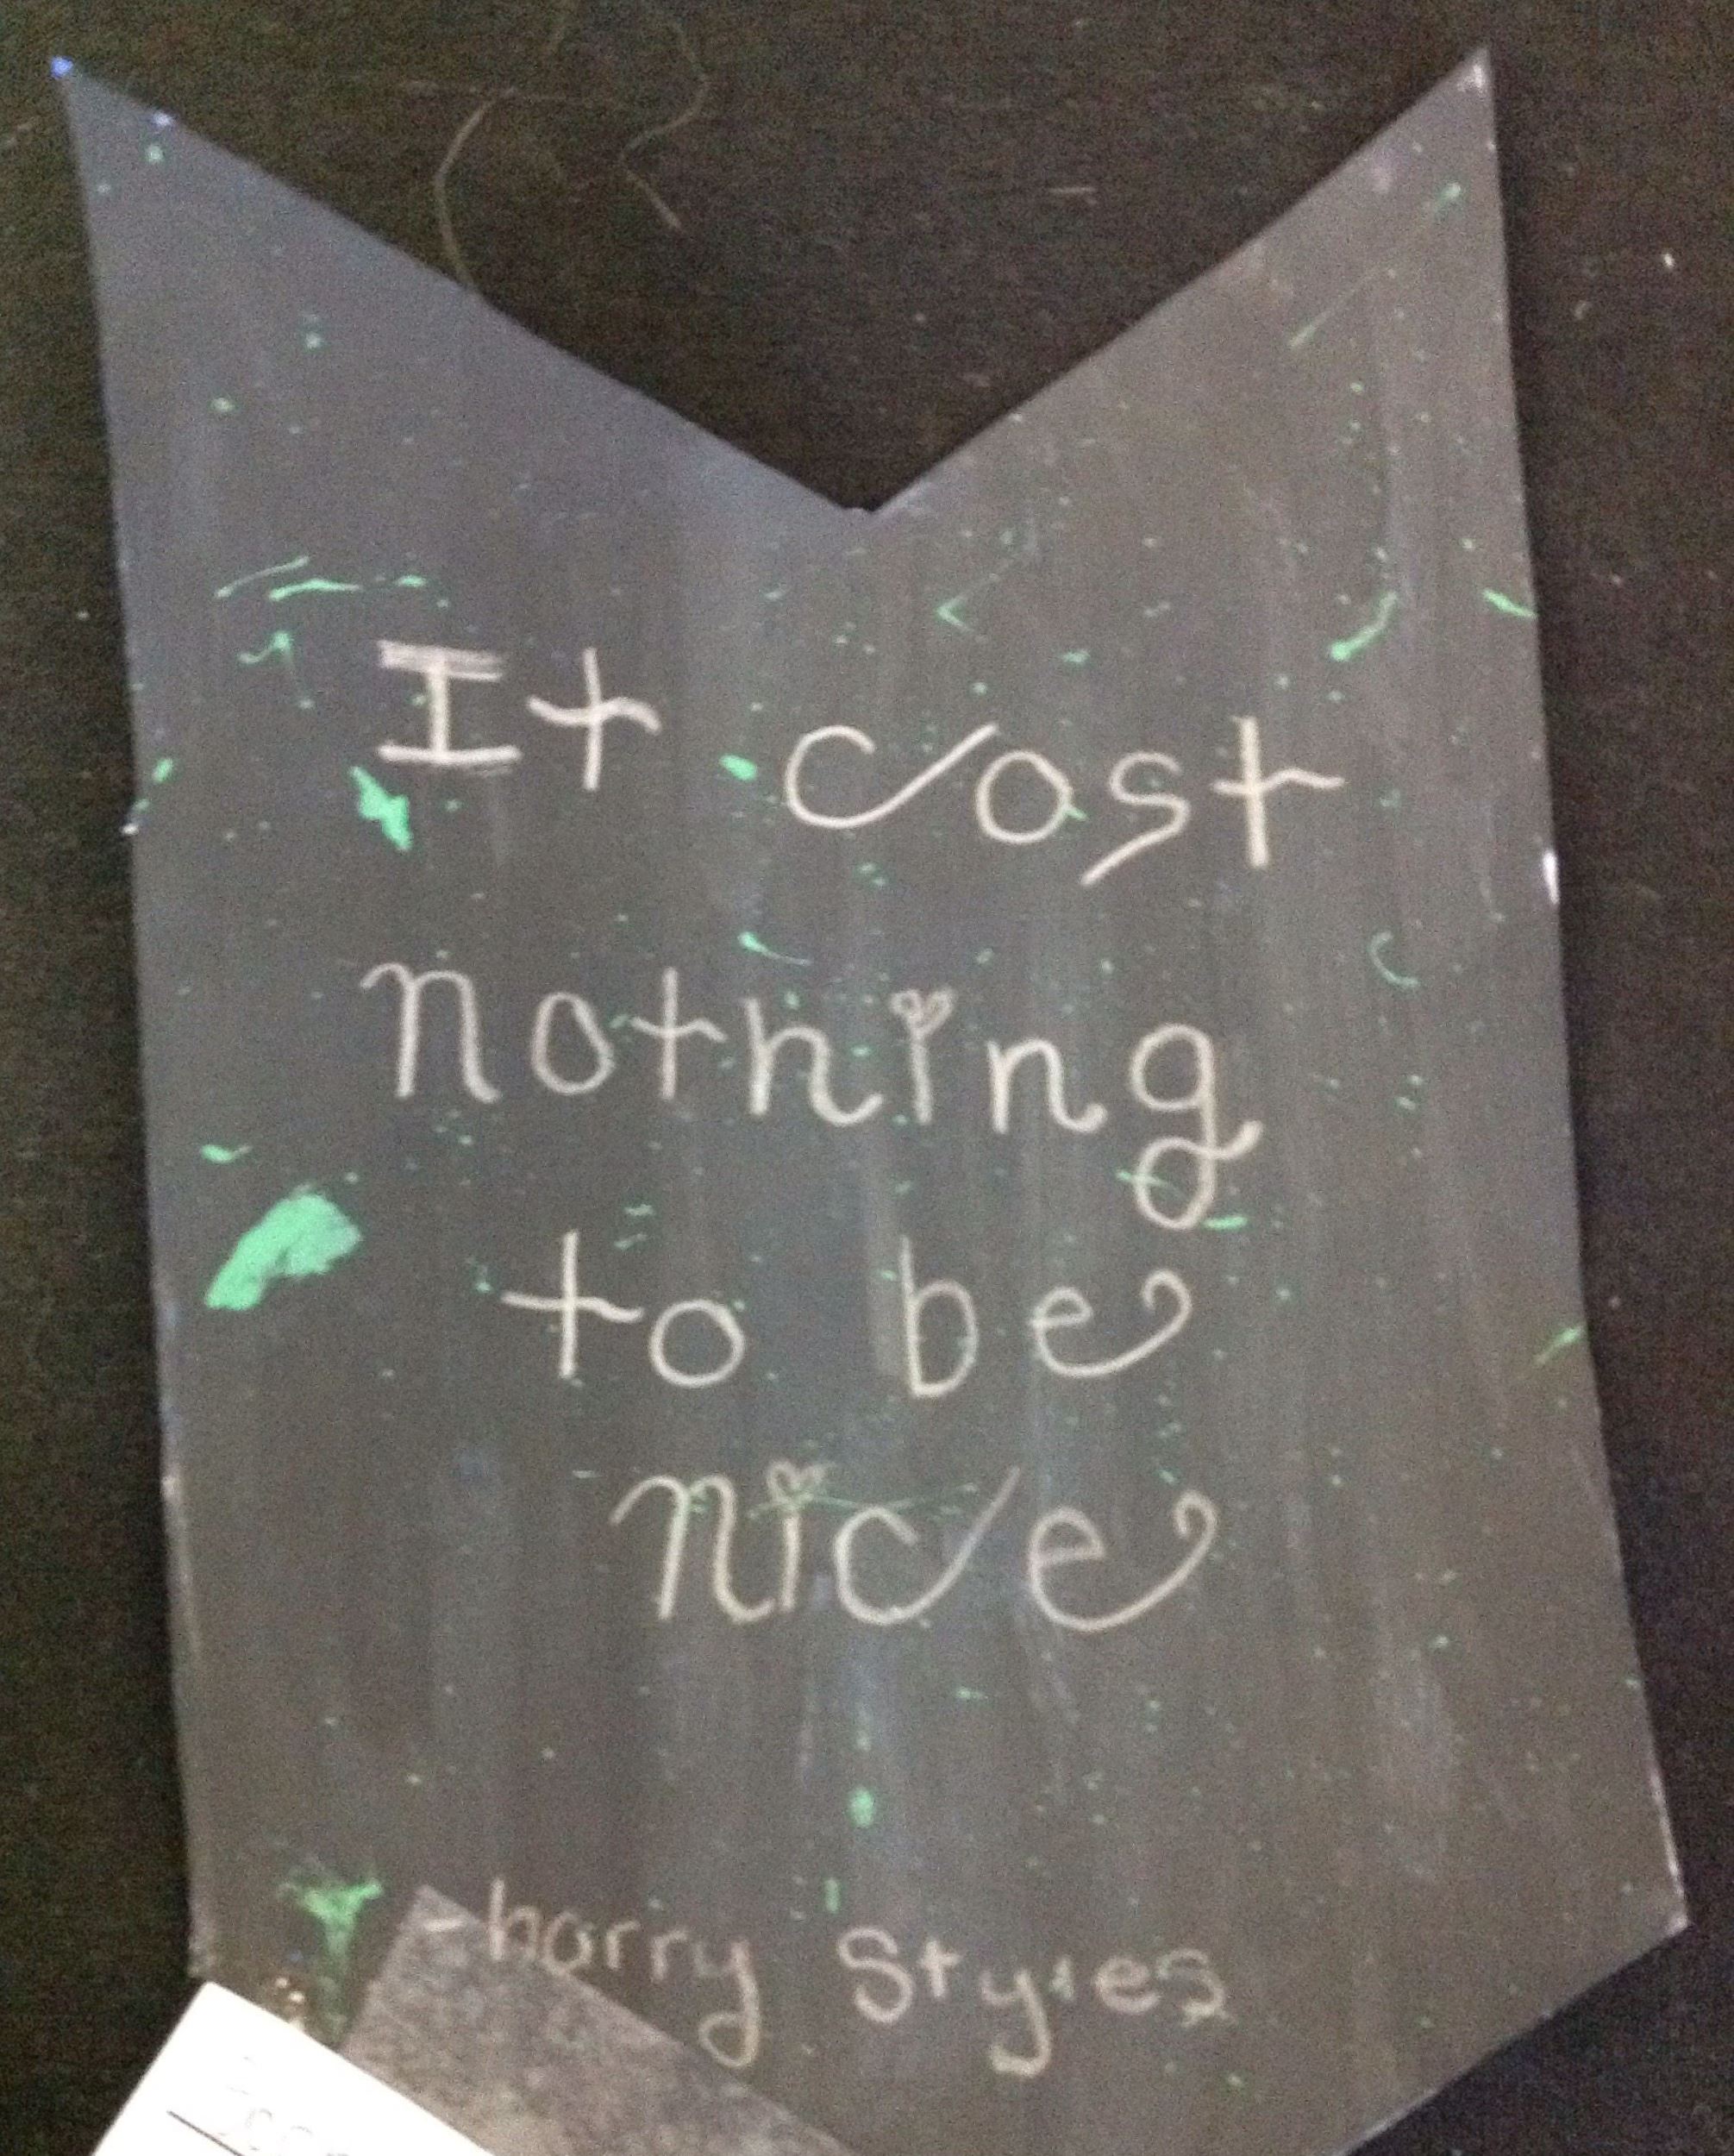 It cost
nothing
to be
nice
-harry Styles